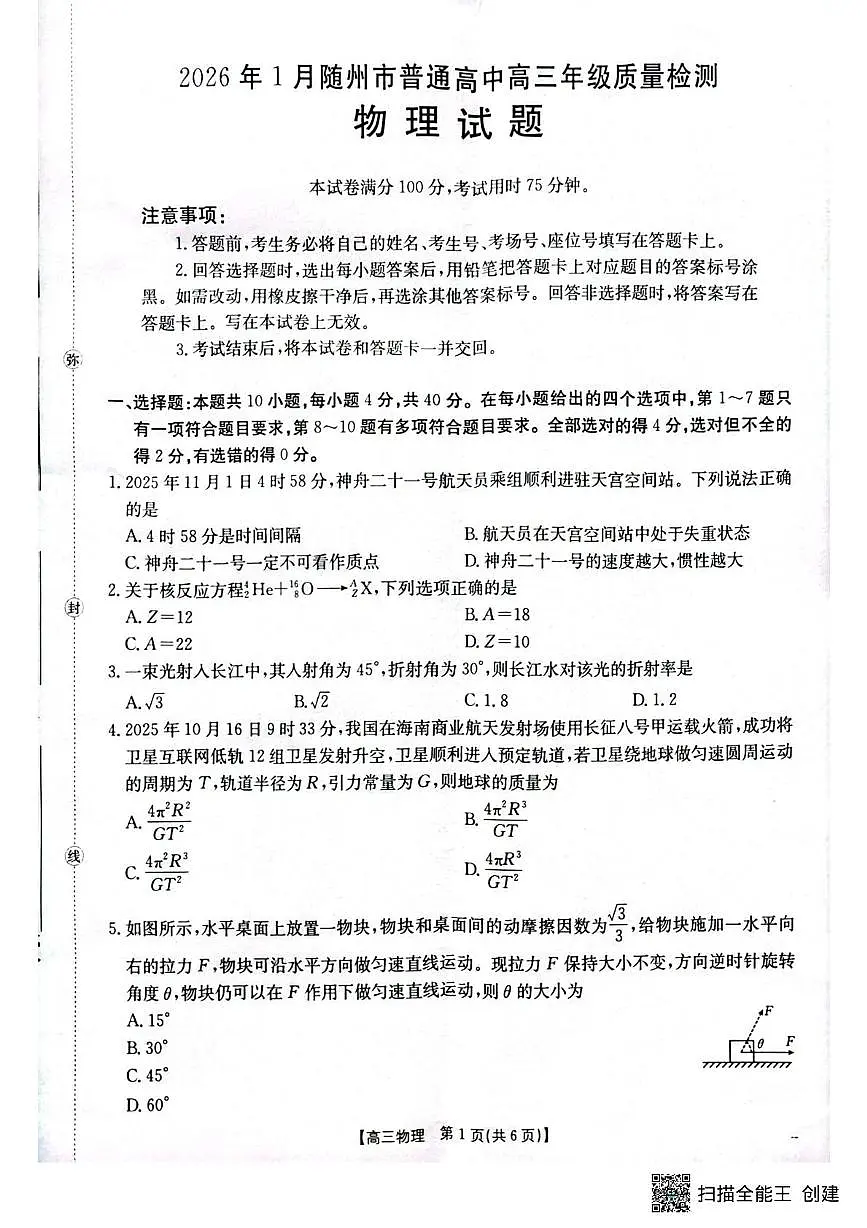 2026年1月随州市普通高中高三年级质量检测
物理试题
本试卷满分100分,考试用时75分钟。
注意事项:
1.答题前,考生务必将自己的姓名、考生号、考场号、座位号填写在答题卡上。
2.回答选择题时,选出每小题答案后,用铅笔把答题卡上对应题目的答案标号涂
黑。如需改动,用橡皮擦干净后,再选涂其他答案标号。回答非选择题时,将答案写在
答题卡上。写在本试卷上无效。
3.考试结束后,将本试卷和答题卡一并交回。
弥
封
线
一、选择题:本题共10小题,每小题4分,共40分。在每小题给出的四个选项中,第1~7题只
有一项符合题目要求,第8~10题有多项符合题目要求。全部选对的得4分,选对但不全的
得2分,有选错的得0分。
1.2025年11月1日4时58分,神舟二十一号航天员乘组顺利进驻天宫空间站。下列说法正确
的是
A.4时58分是时间间隔 B.航天员在天宫空间站中处于失重状态
C.神舟二十一号一定不可看作质点 D.神舟二十一号的速度越大,惯性越大
2.关于核反应方程⁴₂He+¹⁶₈O⟶ᴬ_ZX,下列选项正确的是
A.Z=12 B.A=18
C.A=22 D.Z=10
3.一束光射入长江中,其入射角为45°,折射角为30°,则长江水对该光的折射率是
A.√3 B.√2 C.1.8 D.1.2
4.2025年10月16日9时33分,我国在海南商业航天发射场使用长征八号甲运载火箭,成功将
卫星互联网低轨12组卫星发射升空,卫星顺利进入预定轨道,若卫星绕地球做匀速圆周运动
的周期为T,轨道半径为R,引力常量为G,则地球的质量为
A.4π²R²/GT² B.4π²R³/GT
C.4π²R³/GT² D.4πR³/GT²
5.如图所示,水平桌面上放置一物块,物块和桌面间的动摩擦因数为√3/3,给物块施加一水平向
右的拉力F,物块可沿水平方向做匀速直线运动。现拉力F保持大小不变,方向逆时针旋转
角度θ,物块仍可以在F作用下做匀速直线运动,则θ的大小为
A.15°
B.30°
C.45°
D.60°
F
θ F
【高三物理 第1页(共6页)】
扫描全能王 创建